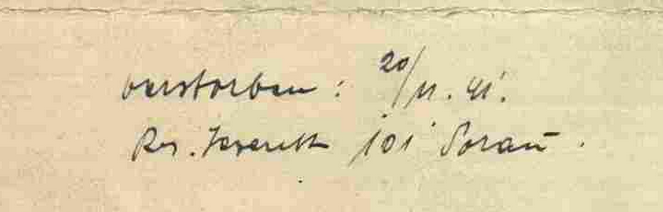 verstorben: 20/11. 41.
Res. Lazarett 101 Sorau.